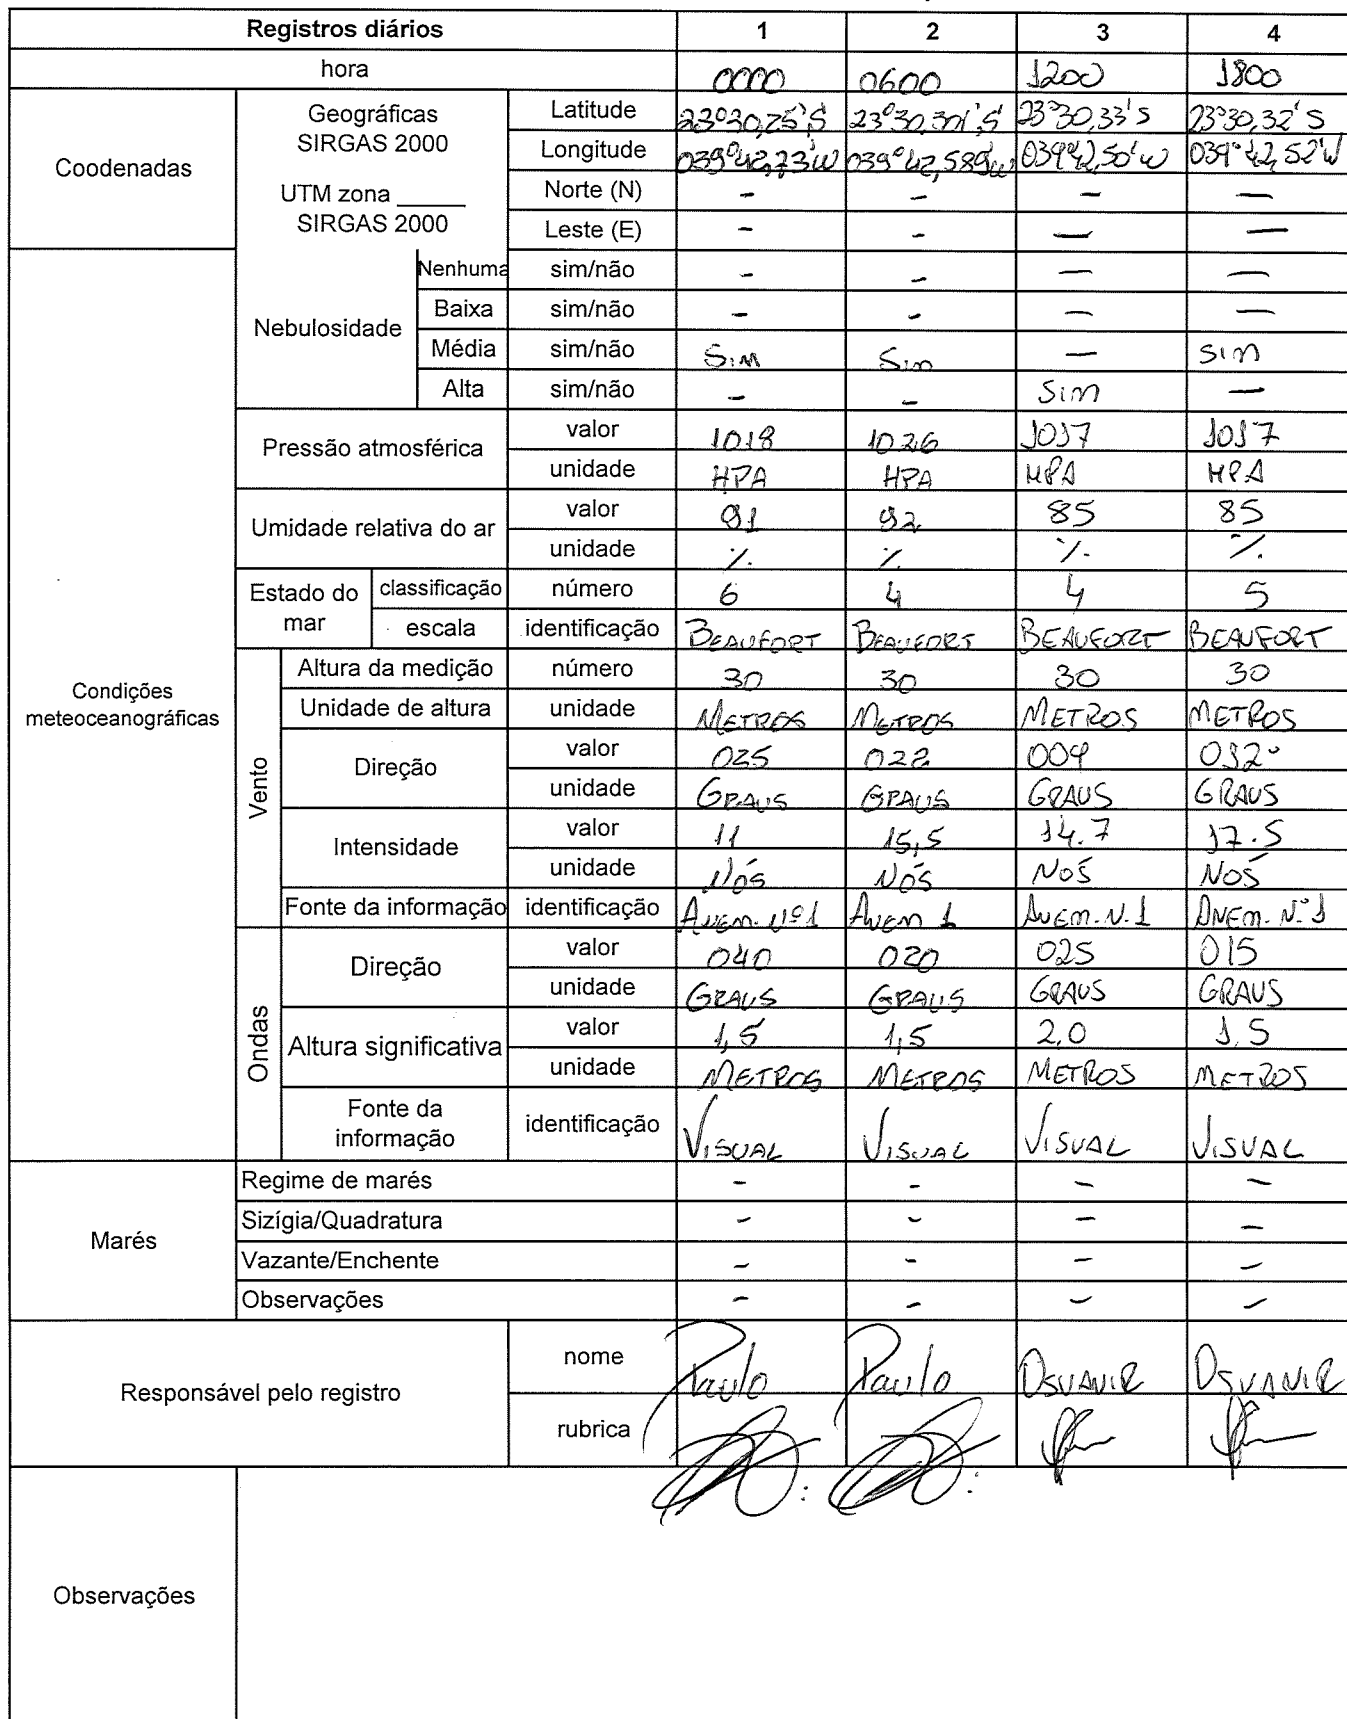 Registros diários 1 2 3 4
hora 0000 0600 1200 1800
Coodenadas
Geográficas
SIRGAS 2000
UTM zona _____
SIRGAS 2000
Latitude 23°30,25'S 23°30,301'S 23°30,33'S 23°30,32'S
Longitude 039°42,73'W 039°42,589'W 039°42,50'W 039°42,52'W
Norte (N) - - - -
Leste (E) - - - -
Condições
meteoceanográficas
Nebulosidade
Nenhuma sim/não - - - -
Baixa sim/não - - - -
Média sim/não Sim Sim - Sim
Alta sim/não - - Sim -
Pressão atmosférica
valor 1018 1026 1017 1017
unidade HPA HPA HPA HPA
Umidade relativa do ar
valor 91 92 85 85
unidade % % % %
Estado do
mar
classificação número 6 4 4 5
escala identificação BEAUFORT BEAUFORT BEAUFORT BEAUFORT
Vento
Altura da medição número 30 30 30 30
Unidade de altura unidade METROS METROS METROS METROS
Direção
valor 022 004
unidade GRAUS GRAUS GRAUS GRAUS
Intensidade
valor 11 15,5 14.7 17.5
unidade NÓS NÓS NÓS NÓS
Fonte da informação identificação ANEM. Nº1 ANEM 1 ANEM. N. 1 ANEM. N.º 1
Ondas
Direção
valor 040 020 025 015
unidade GRAUS GRAUS GRAUS GRAUS
Altura significativa
valor 1,5 1,5 2,0 1,5
unidade METROS METROS METROS METROS
Fonte da
informação
identificação VISUAL VISUAL VISUAL VISUAL
Marés
Regime de marés - - - -
Sizígia/Quadratura - - - -
Vazante/Enchente - - - -
Observações - - - -
Responsável pelo registro
nome Paulo Paulo OSVANIR OSVANIR
rubrica
Observações